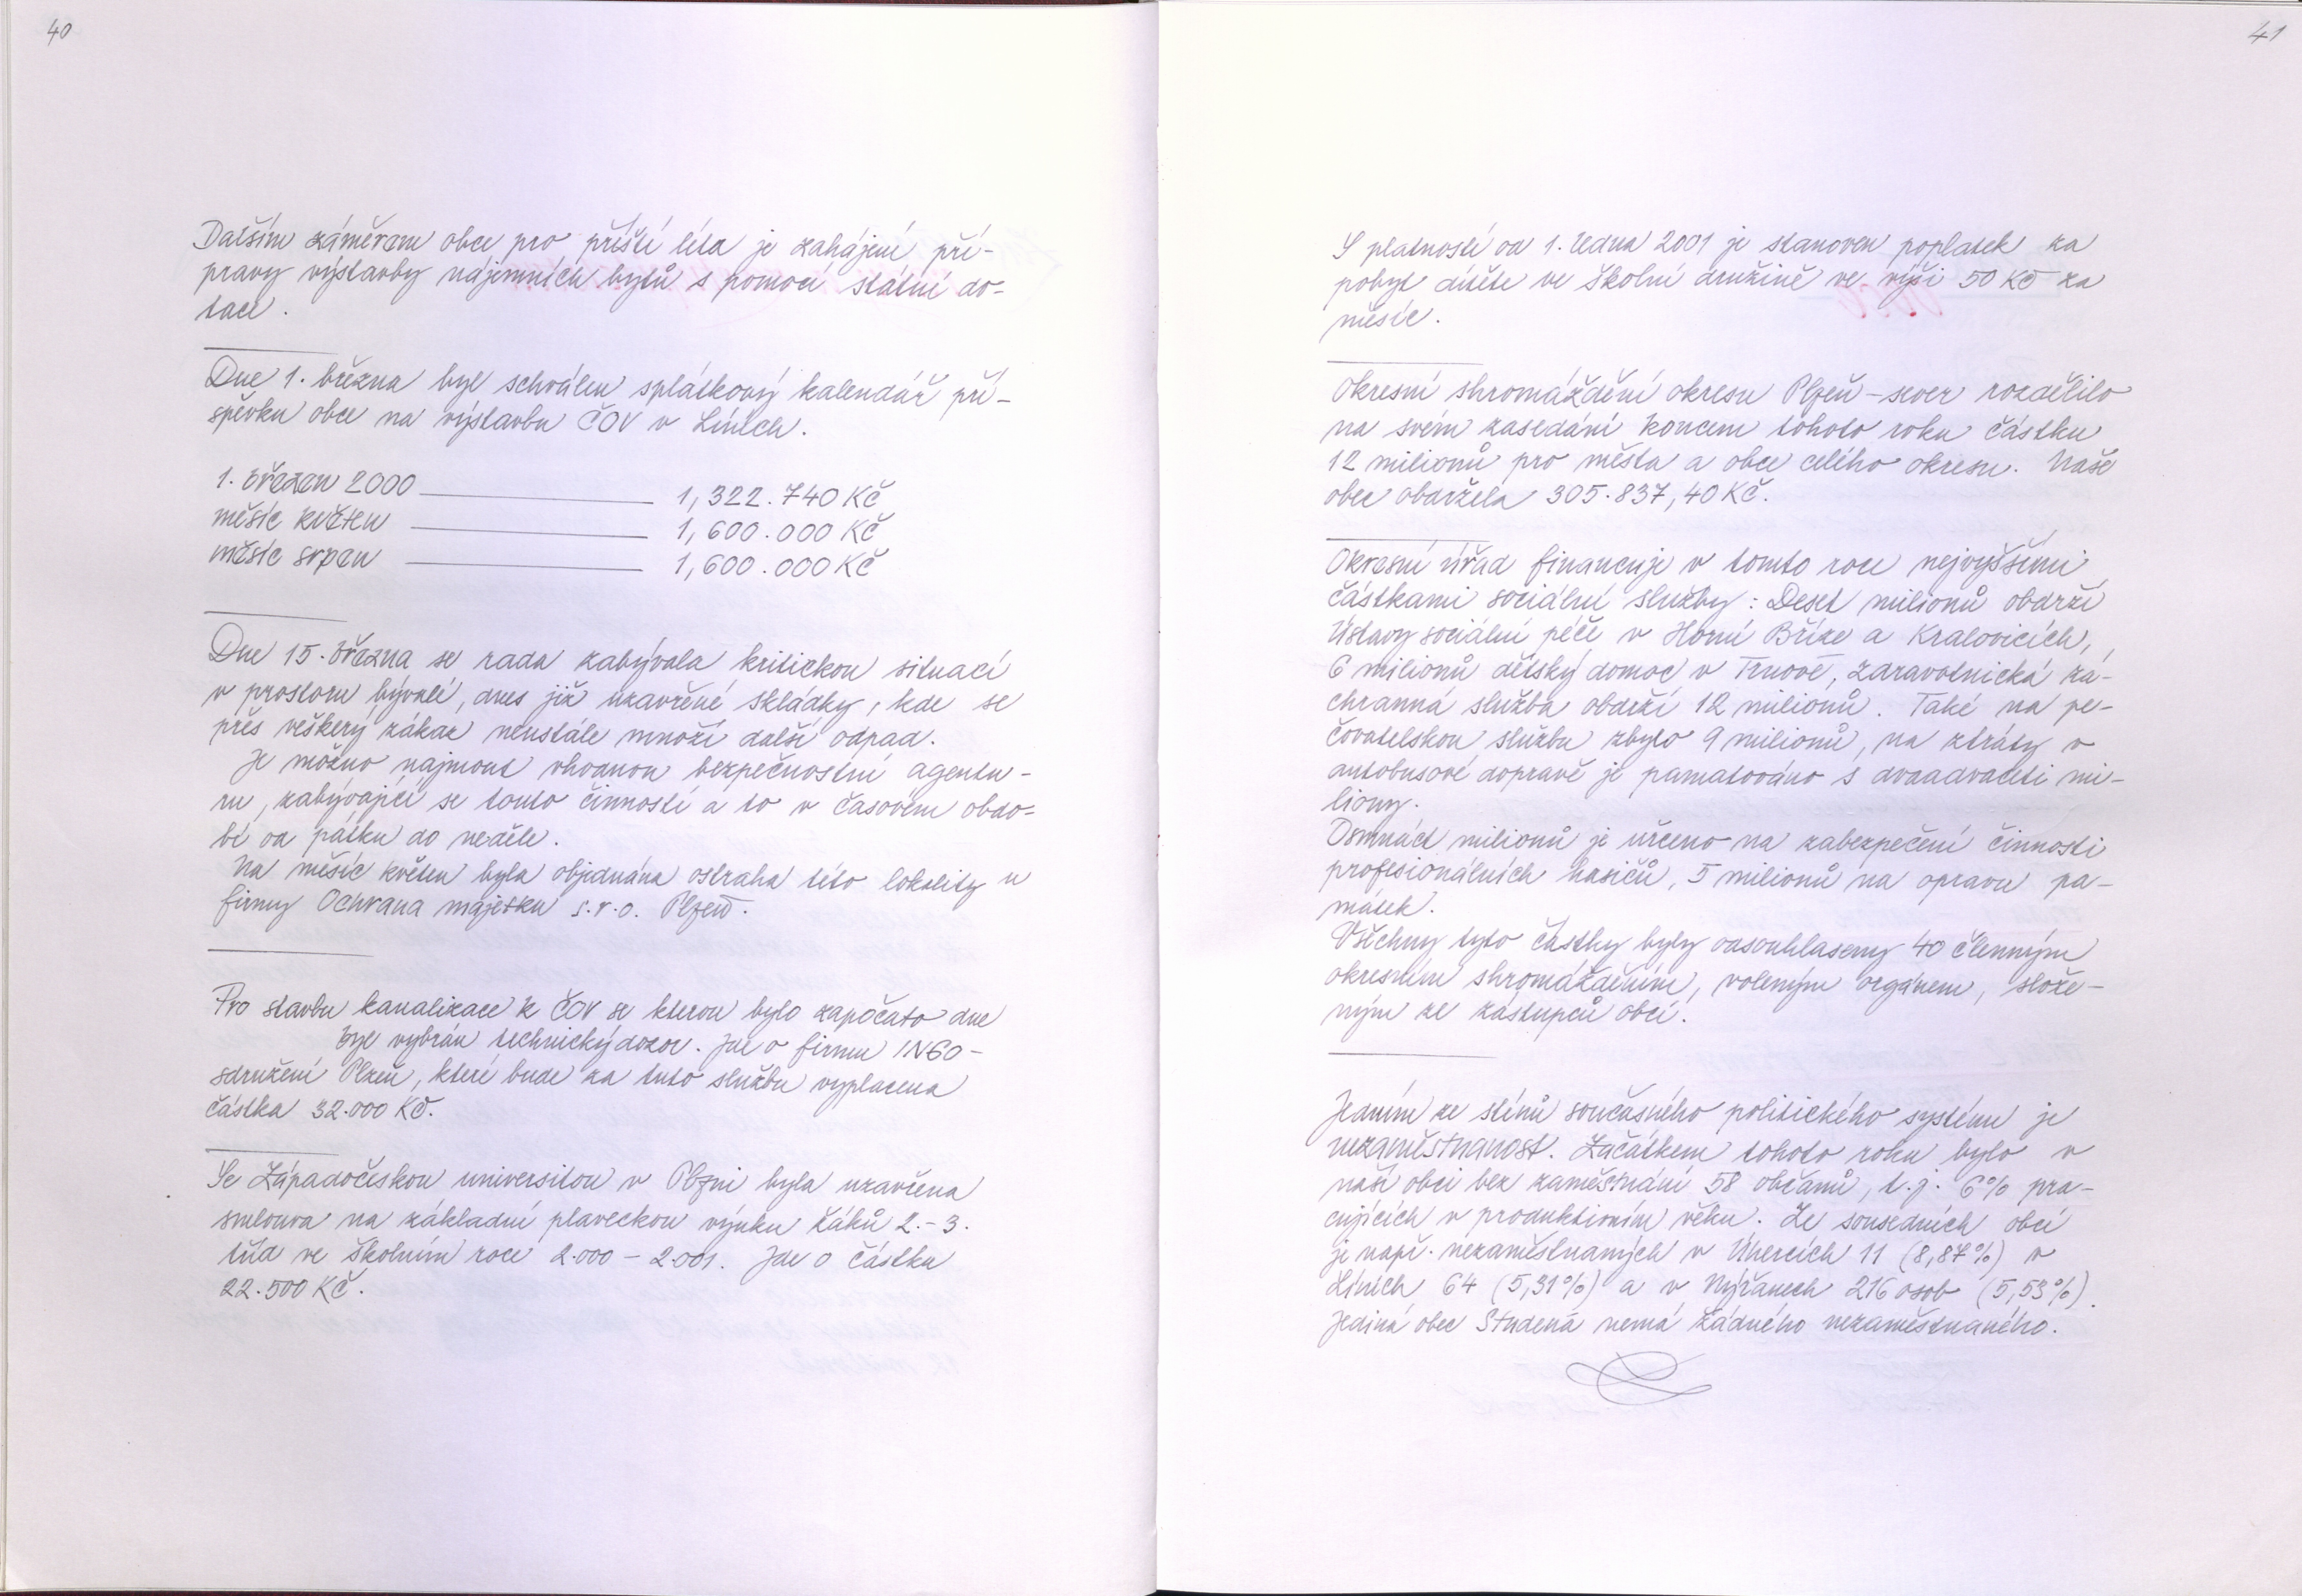 40
Dalším záměrem obce pro příští léta je zahájení pří-
pravy výstavby nájemních bytů s pomocí státní do-
tace.
Dne 1. března byl schválen splátkový kalendář pří-
spěvku obce na výstavbu ČOV v Líních.
1. březen 2000 1,322.740 Kč
měsíc květen 1,600.000 Kč
měsíc srpen 1,600.000 Kč
Dne 15. března se rada zabývala kritickou situací
v prostoru bývalé, dnes již uzavřené skládky, kde se
přes veškerý zákaz neustále množí další odpad.
Je možno najmout vhodnou bezpečnostní agentu-
ru, zabývající se touto činností a to v časovém obdo-
bí od pátku do neděle.
Na měsíc květen byla objednána ostraha této lokality u
firmy Ochrana majetku s.r.o. Plzeň.
Pro stavbu kanalizace k ČOV se kterou bylo započato dne
byl vybrán technický dozor. Jde o firmu INGO-
sdružení Plzeň, které bude za tuto službu vyplacena
částka 32.000 Kč.
Se Západočeskou universitou v Plzni byla uzavřena
smlouva na základní plaveckou výuku žáků 2.-3.
tříd ve školním roce 2.000 - 2.001. Jde o částku
22.500 Kč.
41
S platností od 1. ledna 2001 je stanoven poplatek za
pobyt dítěte ve školní družině ve výši 50 Kč za
měsíc.
Okresní shromáždění okresu Plzeň-sever rozdělilo
na svém zasedání koncem tohoto roku částku
12 milionů pro města a obce celého okresu. Naše
obec obdržela 305.837,40 Kč.
Okresní úřad financuje v tomto roce nejvyššími
částkami sociální služby: Deset milionů obdrží
Ústavy sociální péče v Horní Bříze a Kralovicích,
6 milionů dětský domov v Trnové, zdravotnická zá-
chranná služba obdrží 12 milionů. Také na pe-
čovatelskou službu zbylo 9 milionů, na ztráty v
autobusové dopravě je pamatováno s dvaadvaceti mi-
liony.
Osmnáct milionů je určeno na zabezpečení činnosti
profesionálních hasičů, 5 milionů na opravu pa-
mátek.
Všechny tyto částky byly odsouhlaseny 40 členným
okresním shromážděním, voleným orgánem, slože-
ným ze zástupců obcí.
Jedním ze stínů současného politického systému je
nezaměstnanost. Začátkem tohoto roku bylo v
naší obci bez zaměstnání 58 občanů, t.j. 6% pra-
cujících v produktivním věku. Ze sousedních obcí
je např. nezaměstnaných v Úhercích 11 (8,87%) v
Líních 64 (5,31%) a v Nýřanech 216 osob (5,53%).
Jediná obec Studená nemá žádného nezaměstnaného.